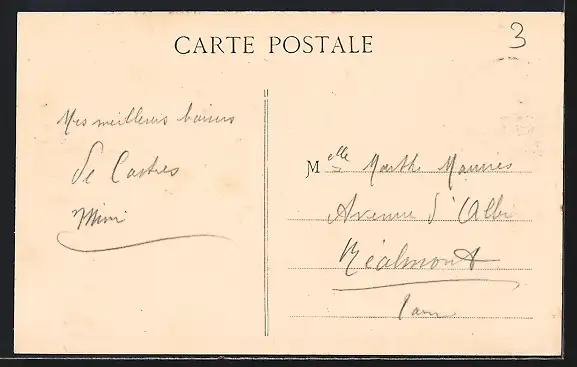 CARTE POSTALE
3
Mes meilleurs baisers
de Castres
Mimi
Melle Marthe Mauriès
Avenue d'Albi
Réalmont
Tarn